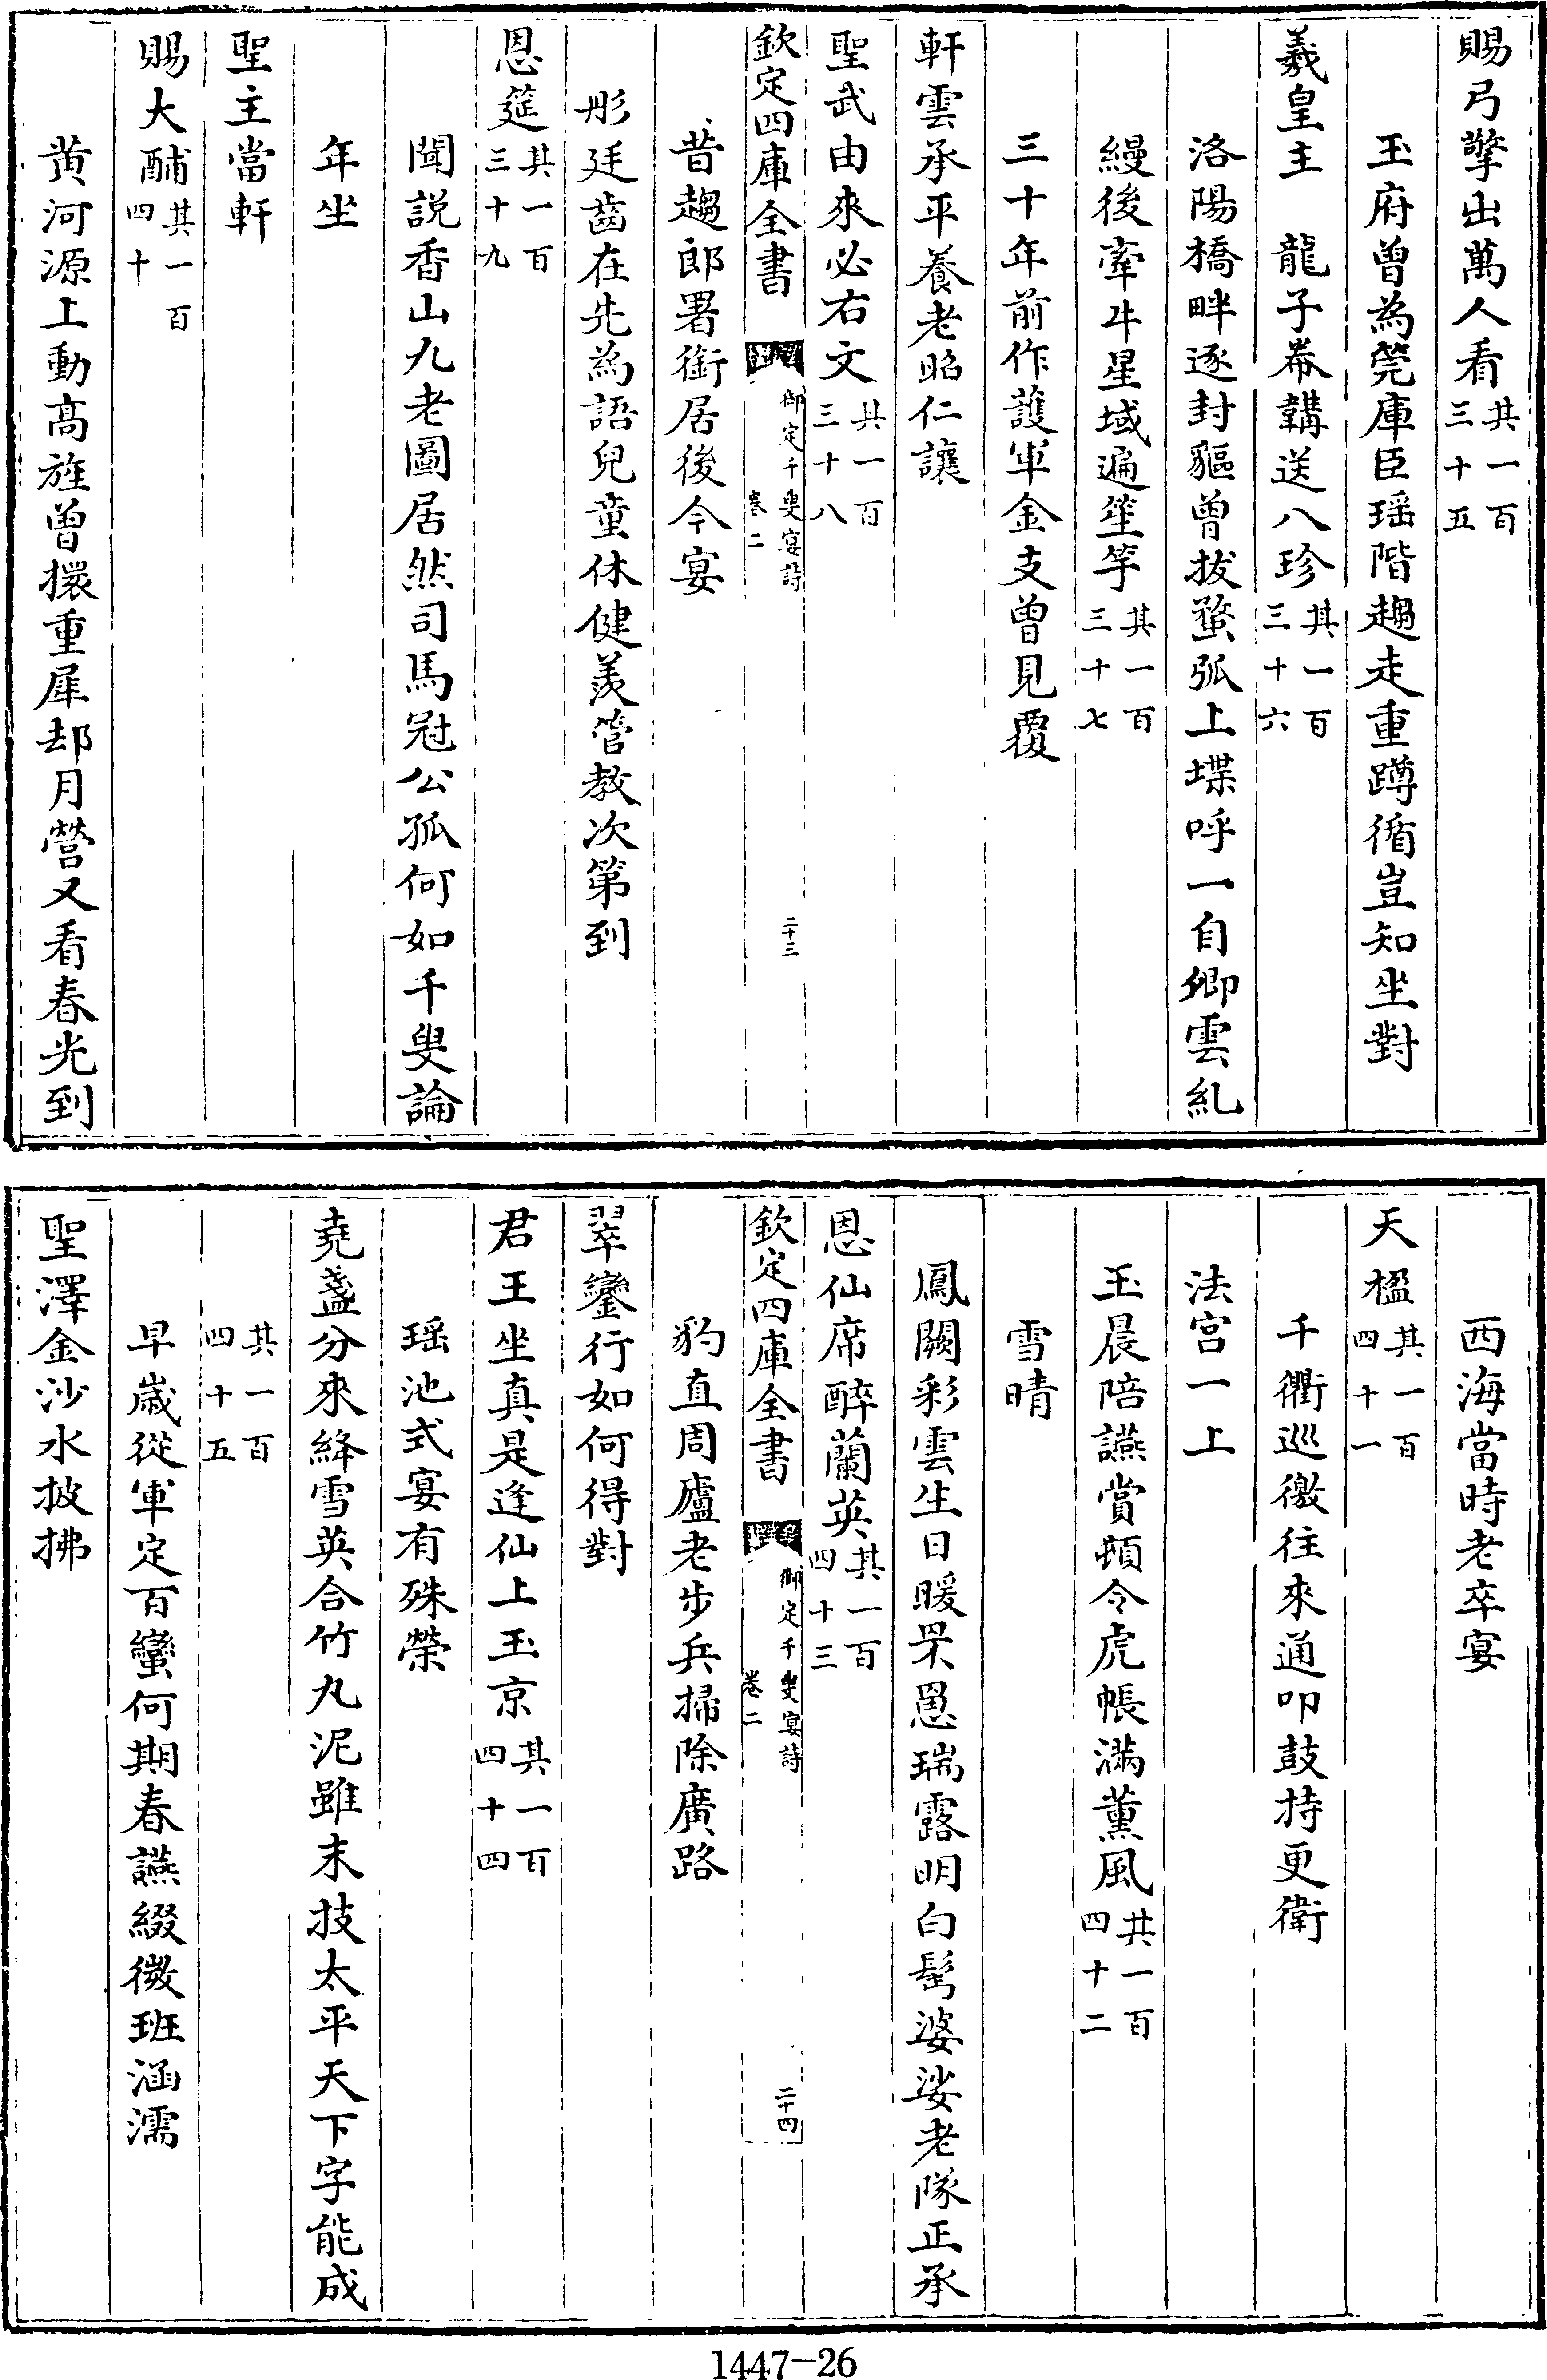 賜弓擎出萬人看其一百三十五
玉府曾為筦庫臣瑶階趨走重蹲循豈知坐對
羲皇主　龍子帣韝送八珍其一百三十六
洛陽橋畔逐封貙曾拔蝥弧上堞呼一自卿雲糺
縵後牽牛星域遍笙竽其一百三十七
三十年前作䕶軍金支曾見覆
軒雲承平養老昭仁讓
聖武由來必右文其一百三十八
欽定四庫全書　御定千叟宴詩　卷二　二十三
昔趨郎署銜居後今宴
彤廷齒在先為語兒童休健羨管教次第到
恩筵其一百三十九
聞説香山九老圖居然司馬冠公孤何如千叟論
年坐
聖主當軒
賜大酺其一百四十
黄河源上動髙旌曾擐重犀却月營又看春光到
西海當時老卒宴
天楹其一百四十一
千衢巡徼往來通叩鼓持更衛
法宫一上
玉晨陪讌賞頓令虎帳滿薫風其一百四十二
雪晴
鳳闕彩雲生日暖罘罳瑞露明白髩婆娑老隊正承
恩仙席醉蘭英其一百四十三
欽定四庫全書　御定千叟宴詩　卷二　二十四
豹直周廬老步兵掃除廣路
翠鑾行如何得對
君王坐真是逢仙上玉京其一百四十四
瑶池式宴有殊榮
堯盞分來絳雪英合竹丸泥雖末技太平天下字能成
其一百四十五
早歲從軍定百蠻何期春讌綴微班涵濡
聖澤金沙水披拂
1447—26